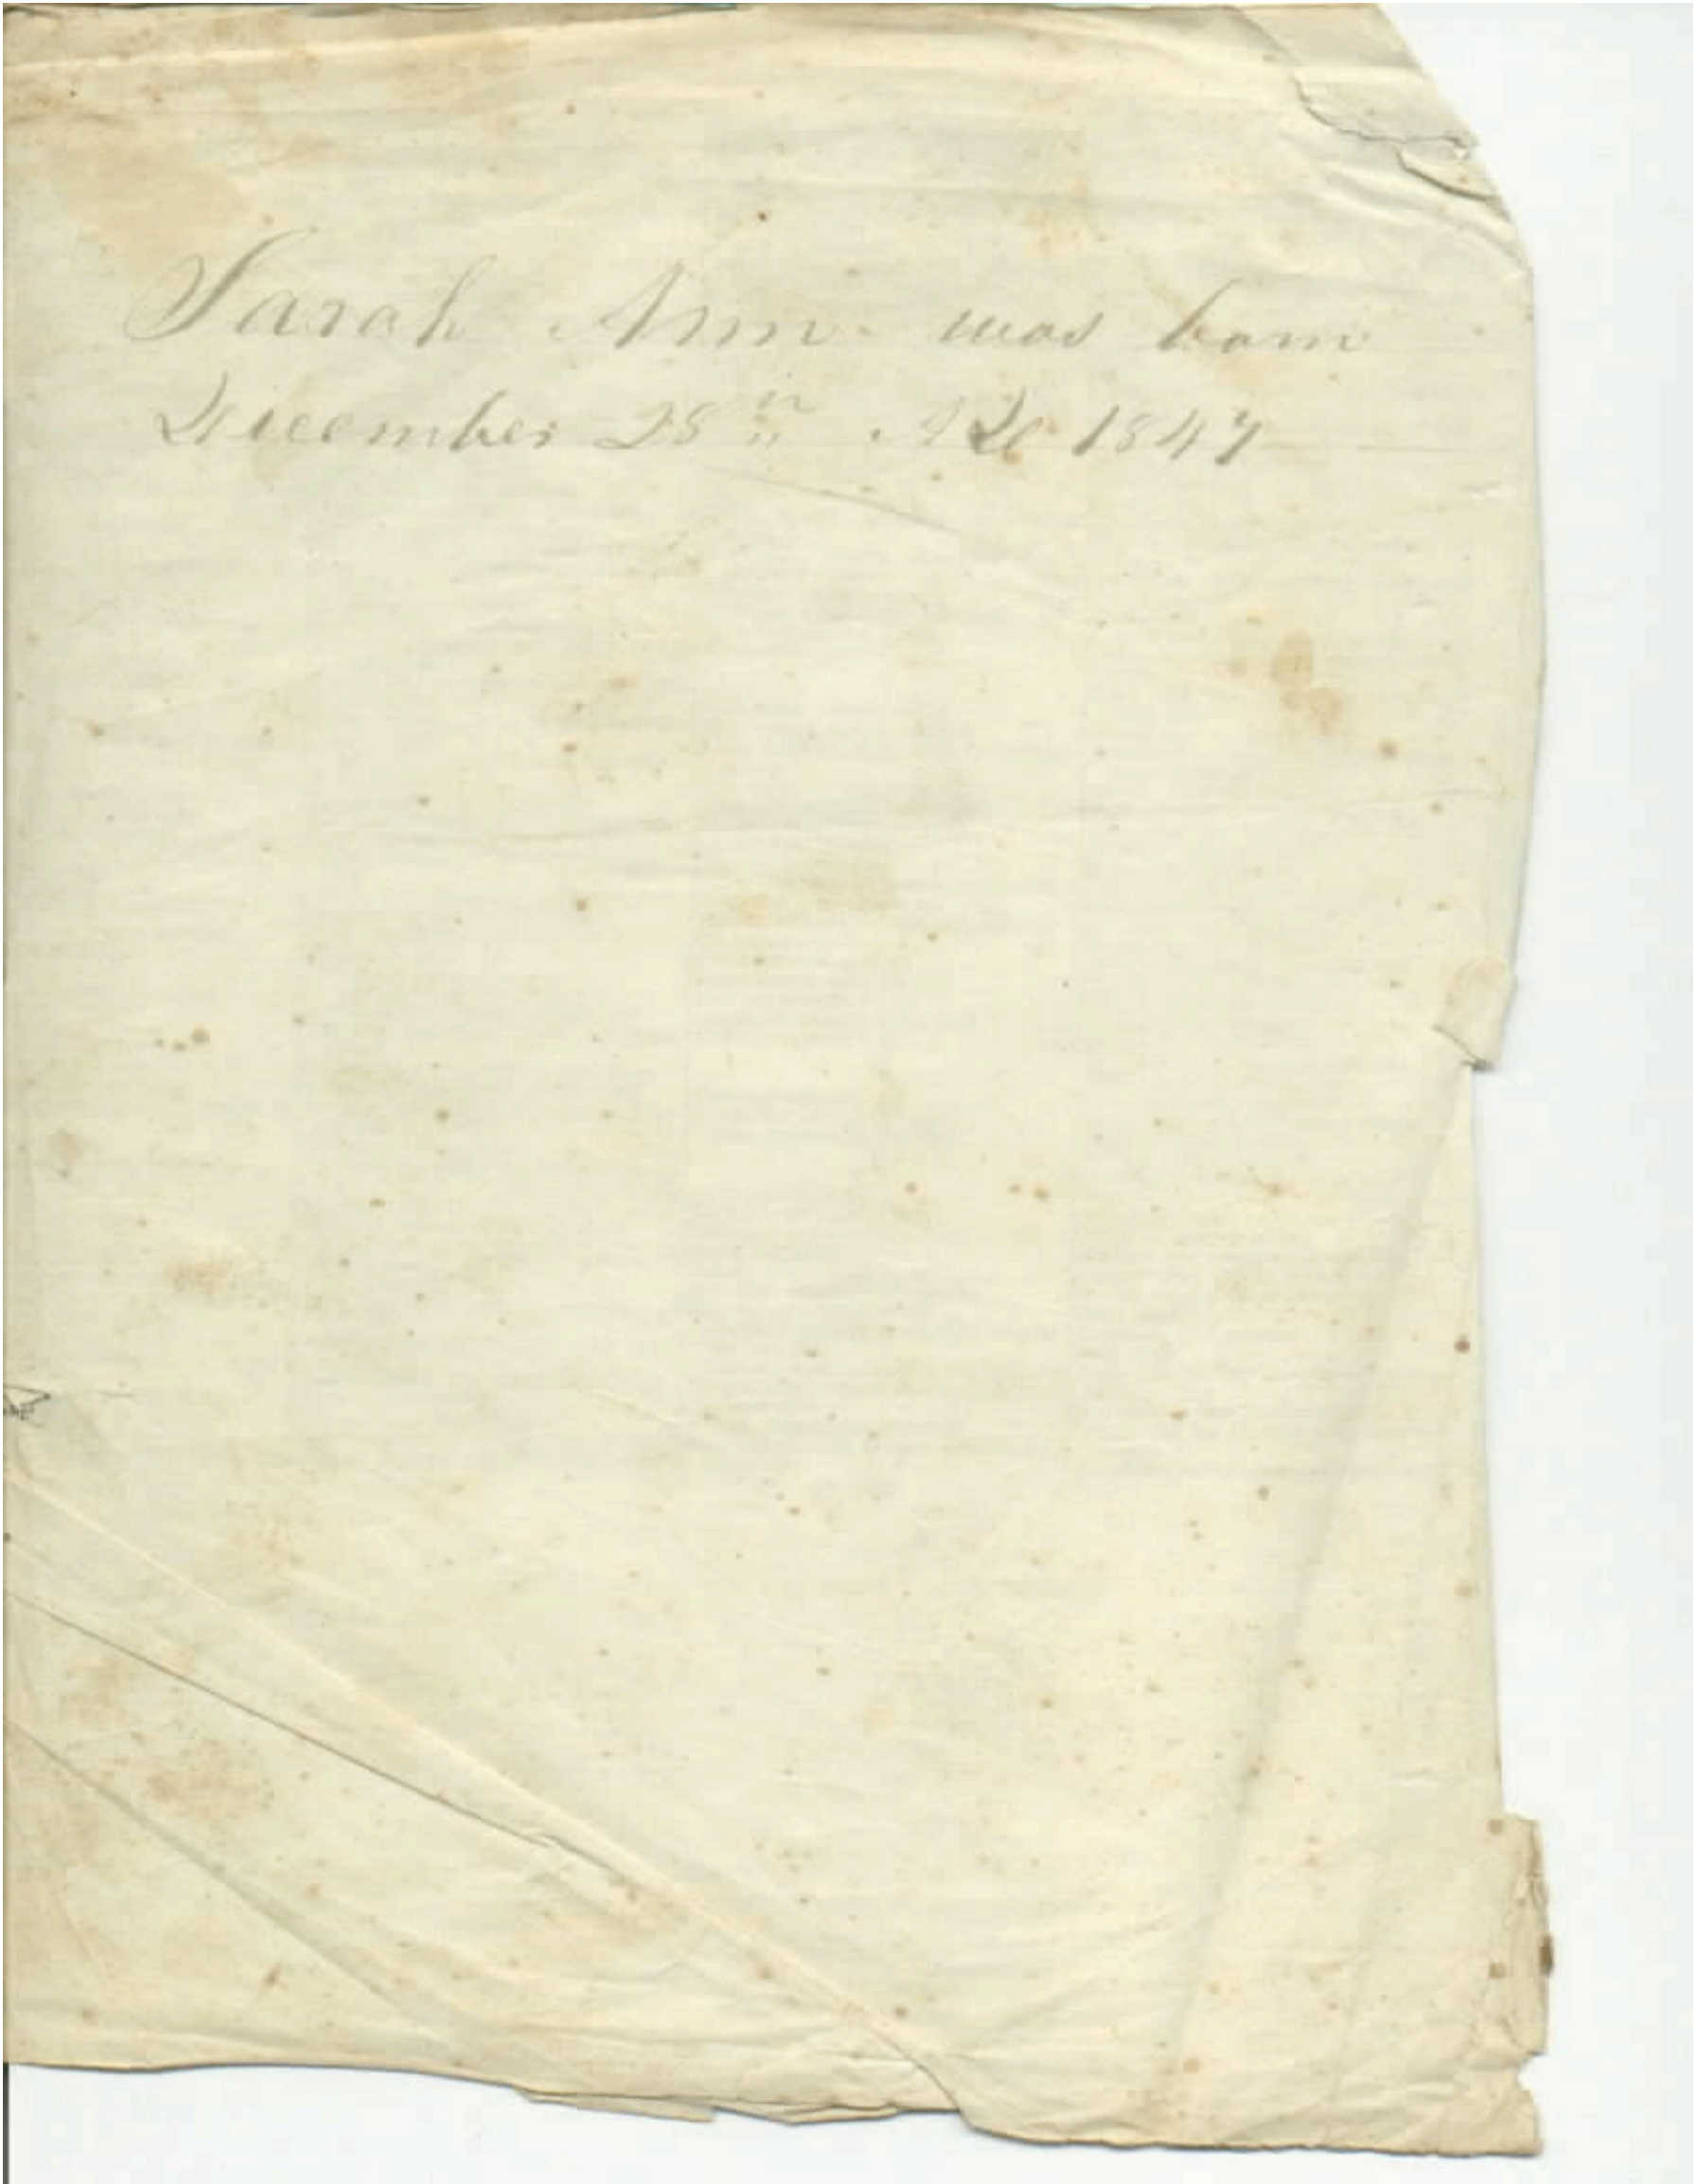 Sarah Ann. was born
December 28th AD 1847